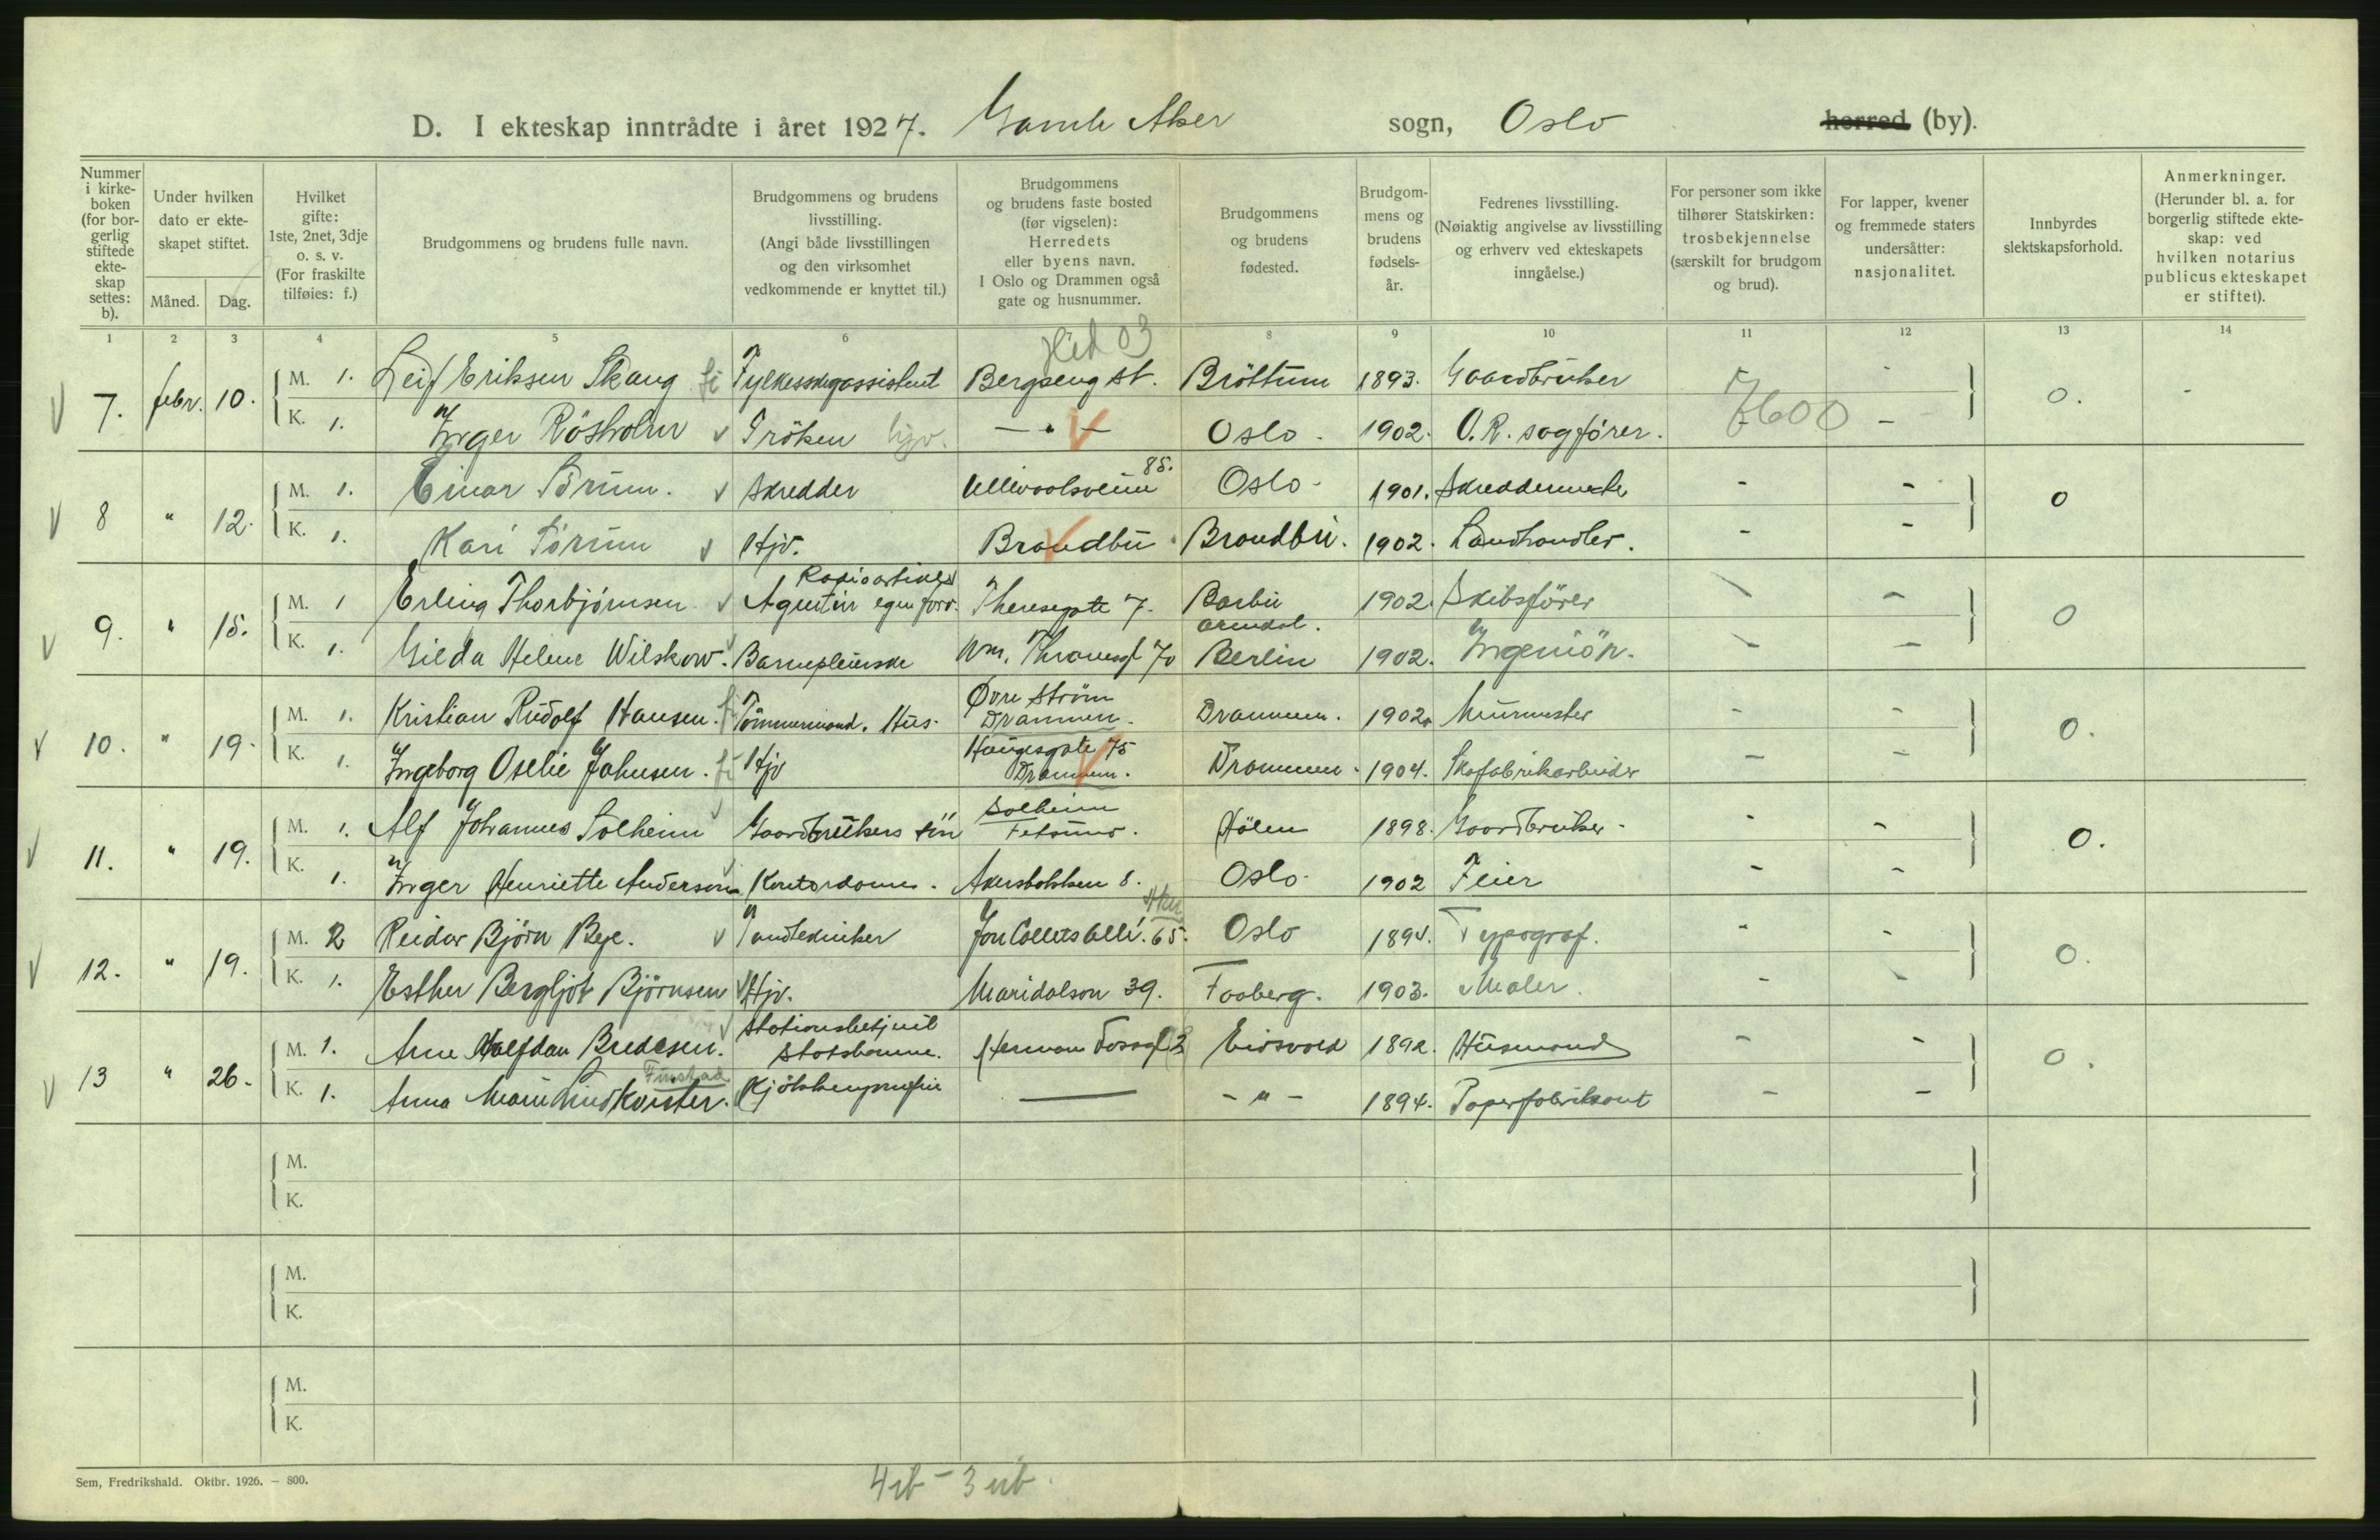 D. I ekteskap inntrådte i året 1927. Gamle Aker sogn, Oslo herred (by).
Nummer i kirkeboken (for borgerlig stiftede ekteskap settes: b).
Under hvilken dato er ekteskapet stiftet.
Måned. Dag.
Hvilket gifte: 1ste, 2net, 3dje o. s. v. (For fraskilte tilføies: f.)
Brudgommens og brudens fulle navn.
Brudgommens og brudens livsstilling. (Angi både livsstillingen og den virksomhet vedkommende er knyttet til.)
Brudgommens og brudens faste bosted (før vigselen): Herredets eller byens navn. I Oslo og Drammen også gate og husnummer.
Brudgommens og brudens fødested.
Brudgommens og brudens fødselsår.
Fedrenes livsstilling. (Nøiaktig angivelse av livsstilling og erhverv ved ekteskapets inngåelse.)
For personer som ikke tilhører Statskirken: trosbekjennelse (særskilt for brudgom og brud).
For lapper, kvener og fremmede staters undersåtter: nasjonalitet.
Innbyrdes slektskapsforhold.
Anmerkninger. (Herunder bl. a. for borgerlig stiftede ekteskap: ved hvilken notarius publicus ekteskapet er stiftet).
1 2 3 4 5 6 8 9 10 11 12 13 14
7. febr. 10. M. 1. Leif Eriksen Skaug Bergseng st. Bröttum 1893. Gaardbruker - 0. -
K. 1. Inger Rösholm Fröken hjv. - " - Oslo. 1902. O.R. sagförer. 7600 -
8 " 12. M. 1. Einar Sörum. Skredder Ullevoolsveien 85. Oslo 1901. Skreddermester - - 0
K. 1. Kari Sörum Hjv. Brandbu Brandbu. 1902. Landhandler. - -
9. " 15. M. 1 Erling Thorbjörnsen Agentur egen forr. Radioartikler Theresegate 7. Barbu Arendal. 1902. Skibsförer - - 0
K. 1. Gilda Helene Wilskow. Barnepleierske Wm. Thranesgt 70 Berlin 1902. Ingeniör. - -
10. " 19. M. 1. Kristian Rudolf Hansen. Tömmermand. Hus. Øvre Strøm Drammen. Drammen. 1902. Murmester - - 0.
K. 1. Ingeborg Oselie Johnsen. Hjv Haugesgate 75 Drammen. Drammen. 1904. Skofabrikarbeider - -
11. " 19. M. 1. Alf Johannes Solheim Gaardbrukers sön Solheim Fetsund. Hölen 1898. Gaardbruker - - 0.
K. 1. Inger Henriette Anderson Kontordame. Akersbakken 8. Oslo. 1902 Feier - -
12. " 19. M. 2 Reidar Björn Bye. Tandtekniker Jon Collets Allé. 65. Aker Oslo 1894. Typograf. - - 0.
K. 1. Esther Bergljot Björnsen Hjv. Maridalsvn 39. Faaberg. 1903. Maler. - -
13 " 26. M. 1. Arne Halfdan Bredesen. Stationsbetjent Statsbanene. Herman Fossgt Eidsvold 1892. Husmand - - 0.
K. 1. Anna Marie Lindkvister. Finstad - " - 1894. Papirfabrikant - -
M.
K.
M.
K.
M.
K.
Sem, Fredrikshald. Oktbr. 1926. — 800.